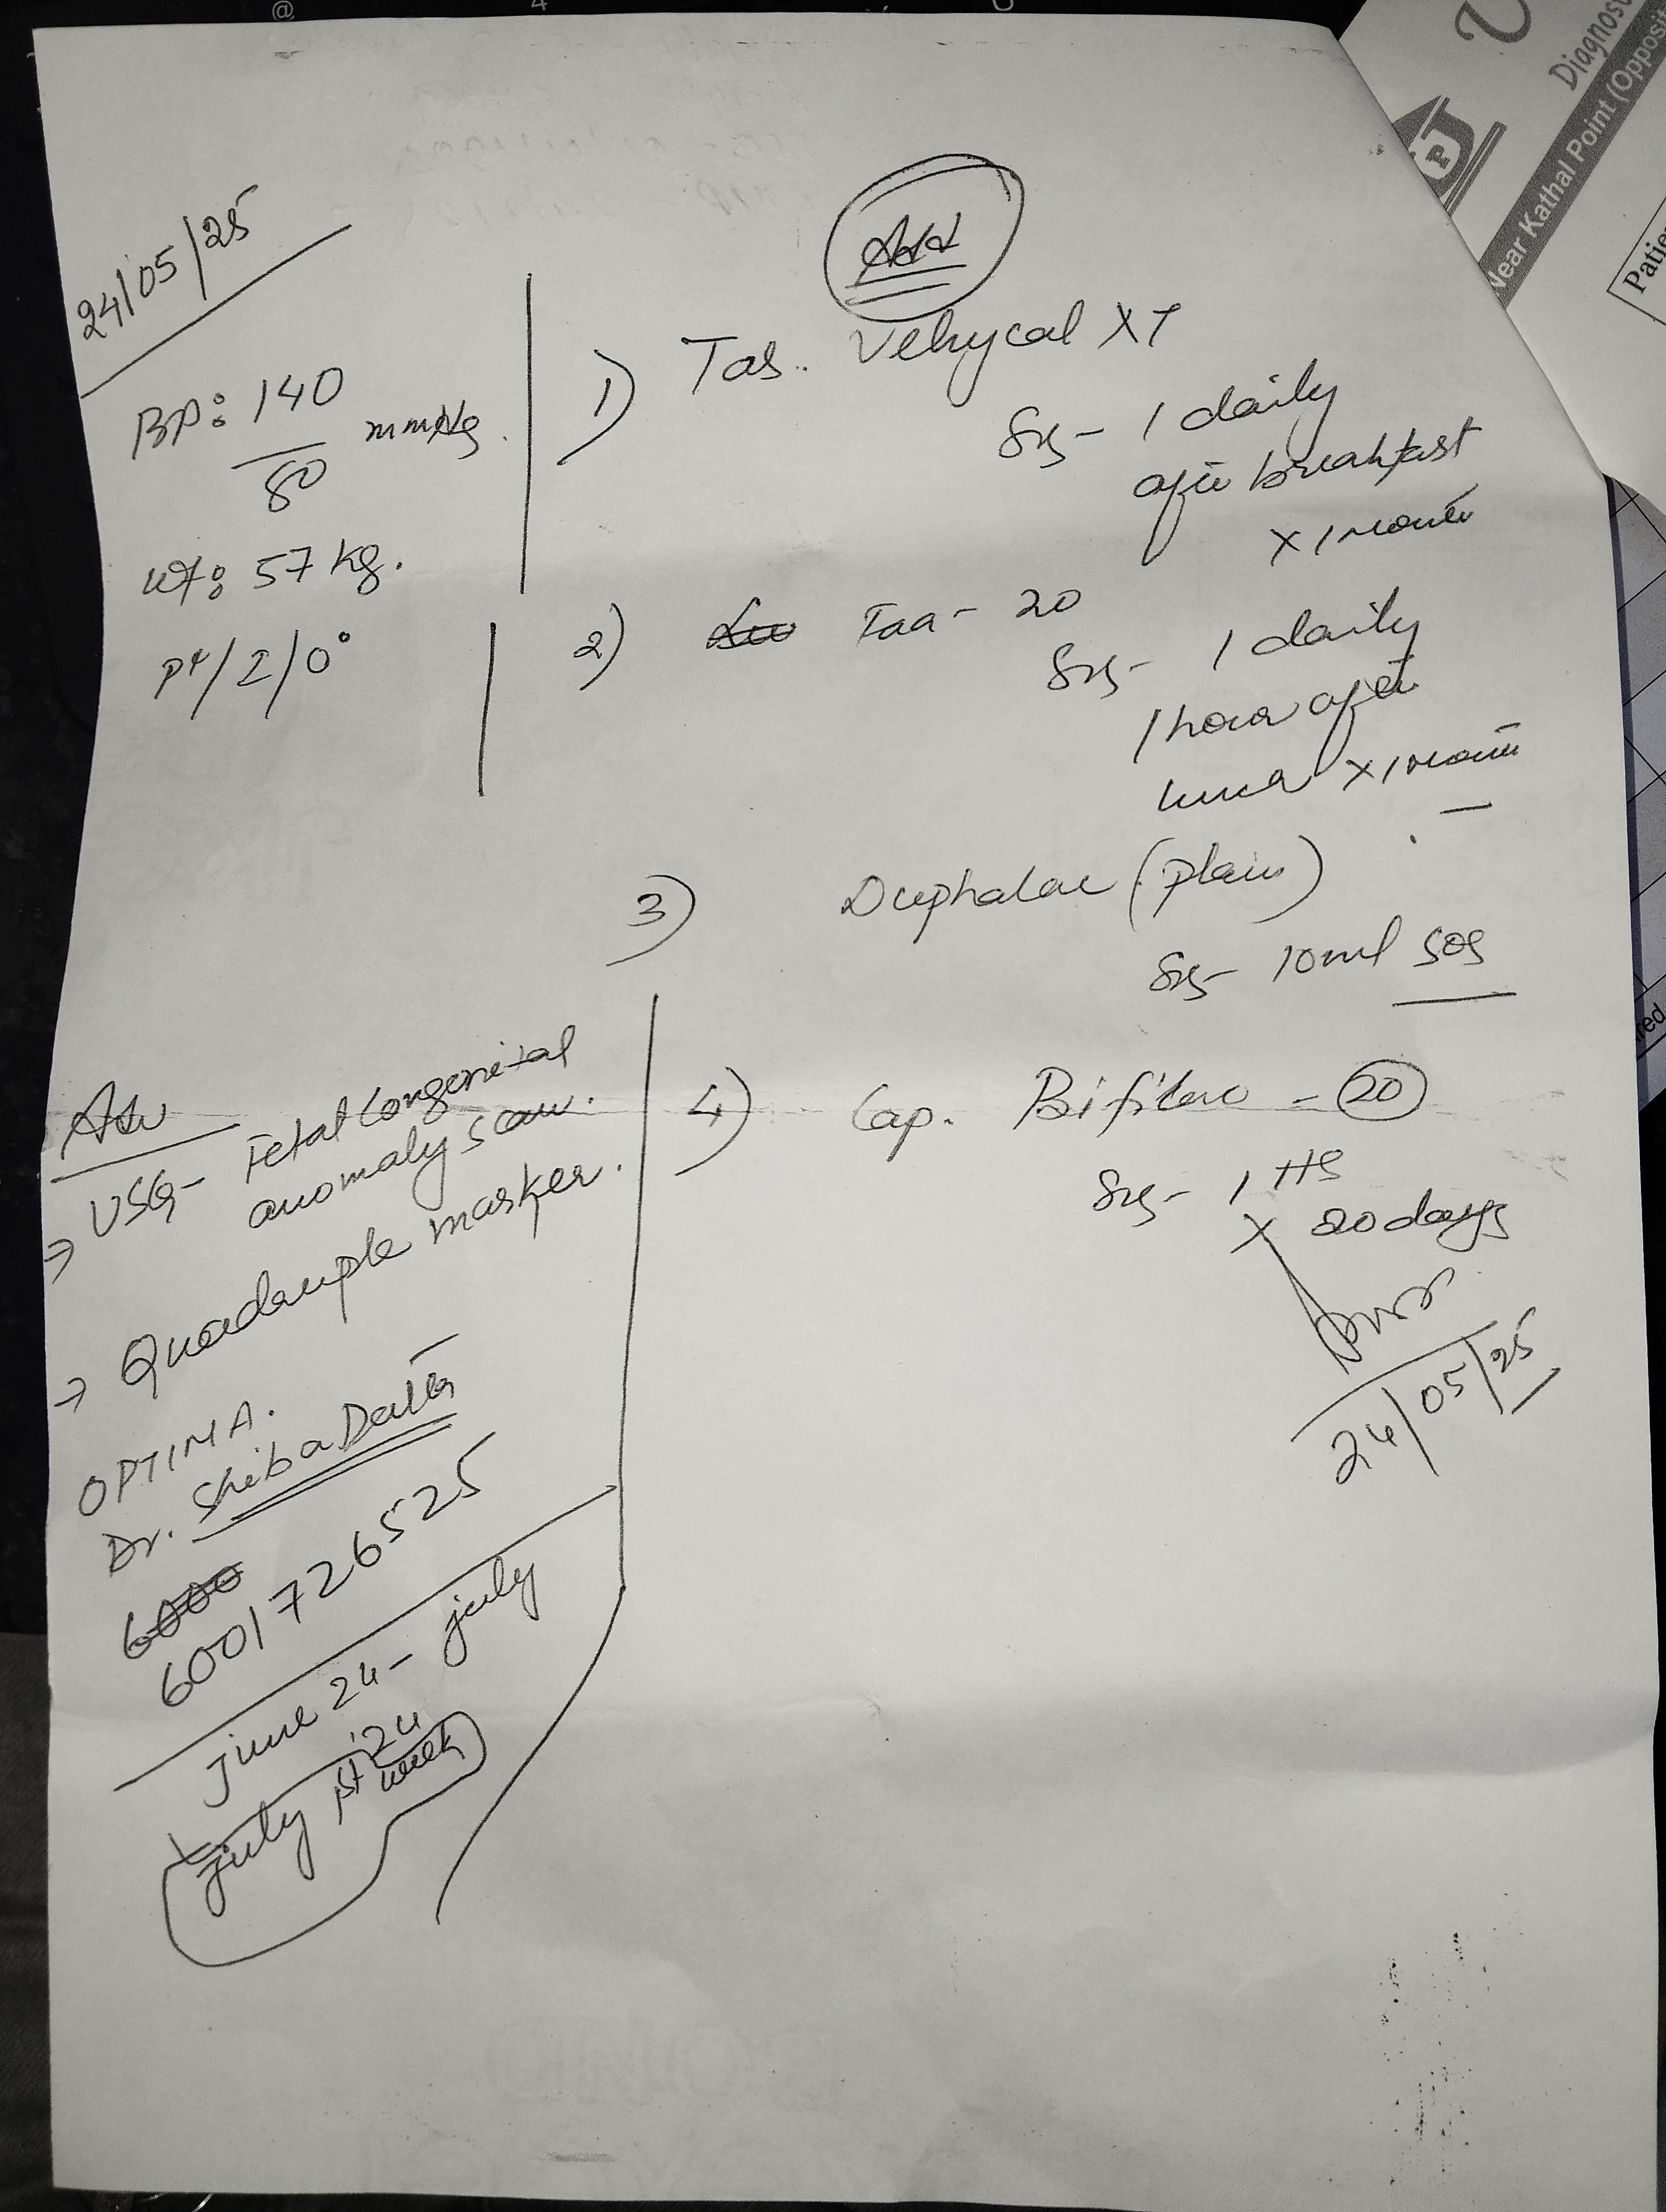 24/05/25
BP: 140/80 mmHg.
wt: 57 kg.
Adv
1) Tab. Velycal XT
Sig- 1 daily
after breakfast
x 1 month
2) Faa - 20
Sig- 1 daily
1 hour after
lunch x 1 month
3) Duphalac (plain)
Sig- 10ml SOS
4) Cap. Bifilac - 20
Sig- 1 HS
x 20 days
24/05/25
Adv
→ USG- Fetal Congenital
anomaly scan.
→ Quadruple marker.
OPTIMA.
Dr. Shiba Datta
6000
6001726525
june 24 - july
'24
july 1st week
Diagnos
Near Kathal Point (Opposit
Patie
red